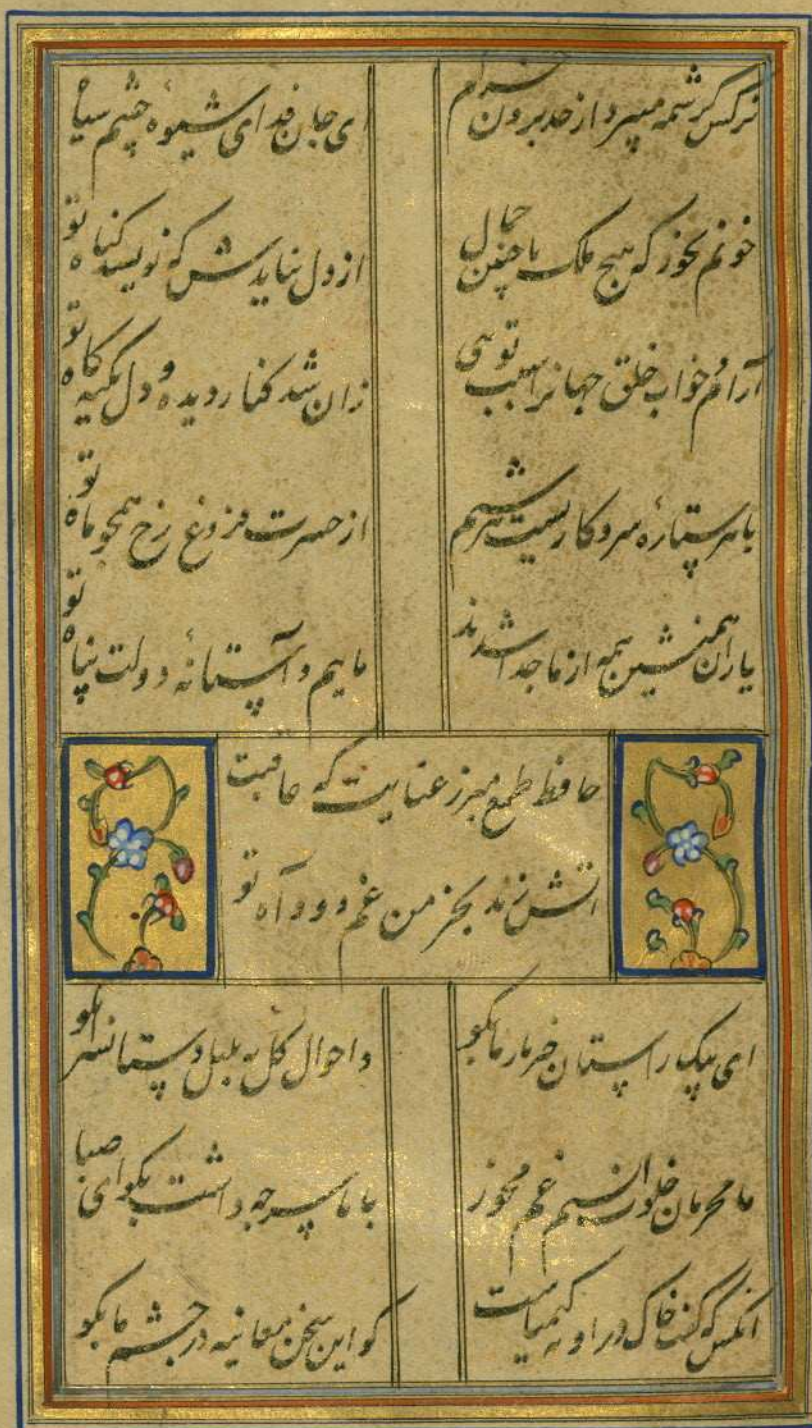 نرکس کرشمه میبرد از حد برون خرام
ای جان فدای شیوه چشم سیاه تو
خونم بخور که هیچ ملک با چنین جمال
از دل نیایدش که نویسد کناه تو
آرام و خواب خلق جهانرا سبب توئی
زان شد کنار دیده و دل تکیه کاه تو
با هر ستاره سر و کاریست هر شبم
از حسرت فروغ رخ همچو ماه تو
یاران همنشین همه از ما جدا شدند
ماییم و آستانه دولت پناه تو
حافظ طمع مبر ز عنایت که عاقبت
اتش زند بخرمن غم دود آه تو
ای پیک راستان خبر یار ما بکو
و احوال کل به بلبل دستانسرا بکو
ما محرمان خلوت انسیم غم مخور
با ما سر چه داشت بکو ای صبا
انکس که کفت خاک در او نه کیمیاست
کو این سخن معاینه در چشم ما بکو